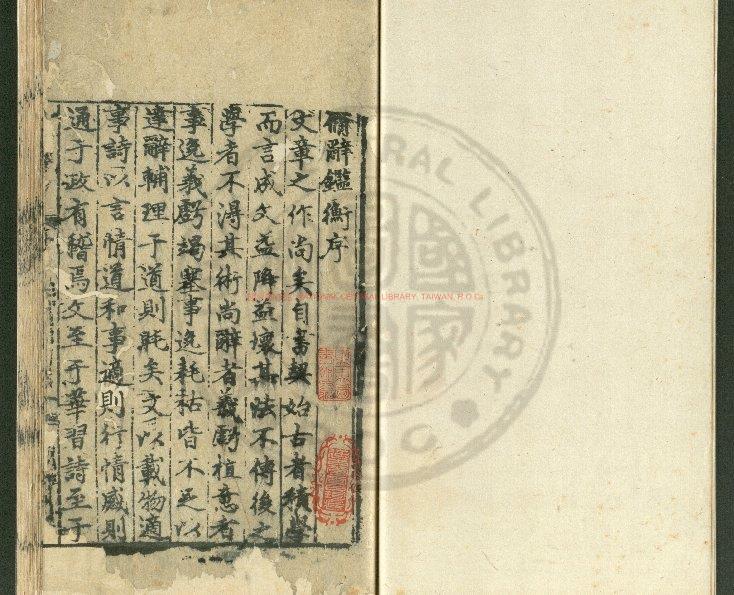 脩辭鑑衡序
文章之作尚矣自書契始古者積學
而言成文益降益壞其法不傳後之
學者不得其術尚辭者義虧植意者
事逸義虧竭蹇事逸耗枯皆不足以
達辭輔理于道則眊矣文以載物適
事詩以言情道和事適則行情感則
通于政有稽焉文至于華習詩至于
NATIONAL CENTRAL LIBRARY, TAIWAN, R.O.C.